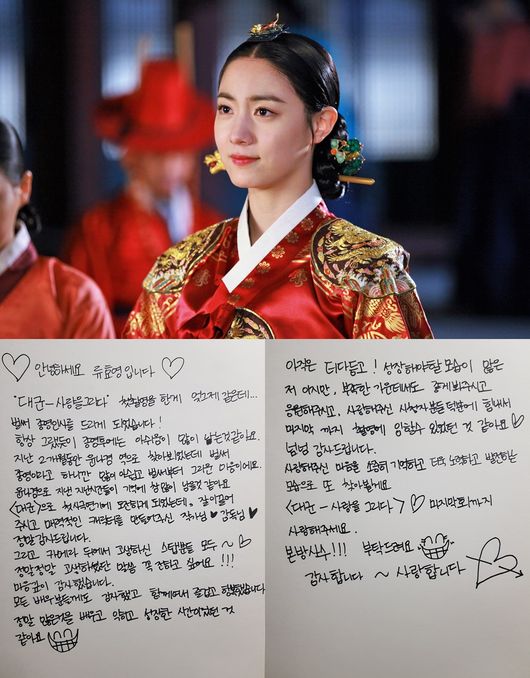 안녕하세요 류효영입니다
"대군-사랑을그리다" 첫촬영을 한게 엊그제 같은데...
벌써 종영인사를 드리게 되었습니다!
항상 그랬듯이 종영후에는 아쉬움이 많이 남는것같아요.
지난 2개월동안 윤나겸 역으로 찾아뵈었는데 벌써
종영이라고 하니깐 많이 아쉽고 벌써부터 그리운 마음이에요.
윤나겸으로 지낸 지난시간들이 기억에 참 많이 남을것 같아요
<대군>으로 첫사극연기에 도전하게 되었는데, 잘 이끌어
주시고 매력적인 캐릭터를 만들어주신 작가님 감독님
정말 감사드립니다.
그리고 카메라 뒤에서 고생하신 스탭분들 모두 ~
정말정말 고생하셨단 말씀 꼭 전하고 싶어요!!!
마음깊이 감사했습니다.
모든 배우분들께도 감사했고 함께여서 즐겁고 행복했습니다
정말 많은것을 배우고 익히고 성장한 시간이었던 것
같아요
아직은 더다듬고! 성장해야할 모습이 많은
저 이지만, 부족한 가운데서도 좋게봐주시고
응원해주시고, 사랑해주신 시청자분들 덕분에 힘내서
마지막 까지 촬영에 임할수 있었던 것 같아요
넘넘 감사드립니다.
사랑해주신 마음을 소중히 기억하고 더욱 노력하고 발전하는
모습으로 또 찾아뵐게요.
<대군-사랑을 그리다> 마지막회까지
사랑해주세요.
본방사수!!! 부탁드려요
감사합니다 ~ 사랑합니다